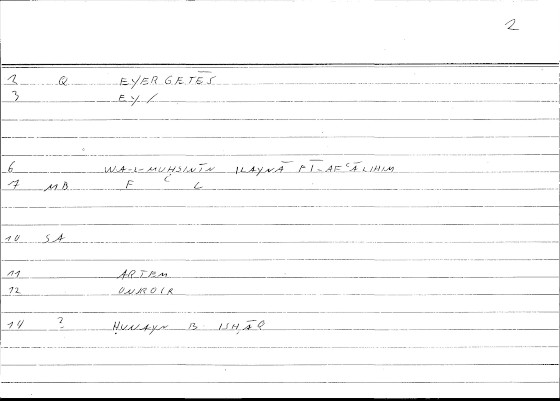 2
2 Q EYERGETĒS
3 EY/
6 WA-L-MUḤSINĪN ILAYNĀ FĪ-AFʿĀLIHIM
7 MB F C L
10 SA
11 ARTEM
12 ONEIR
14 ? ḤUNAYN B ISḤĀQ